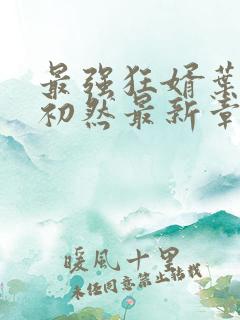 最强狂婿葉
初然最新章
暖風十里
未经同意禁止转载